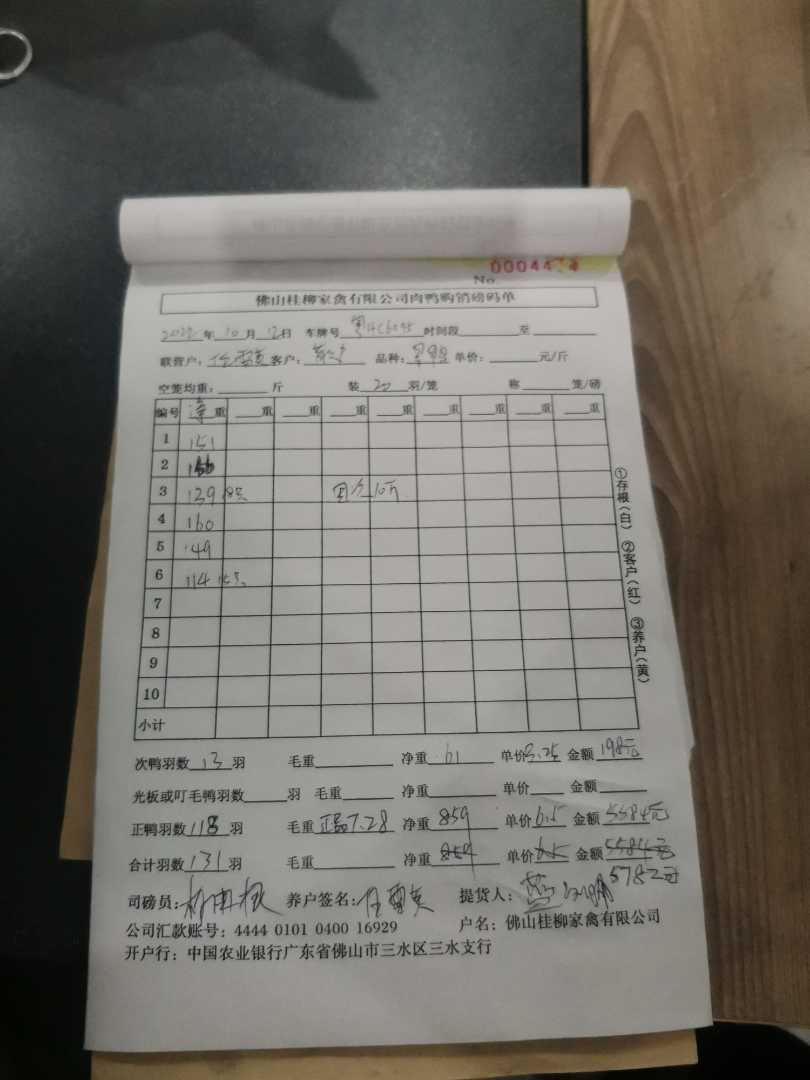 No. 0004474
佛山桂柳家禽有限公司肉鸭购销磅码单
2022年10月12日 车牌号 时间段 至
联营户: 客户: 散户 品种: 单价: 元/斤
空笼均重: 斤 装 20 羽/笼 称 笼/磅
编号 重 重 重 重 重 重 重 重 重
1 151
2
3 139 18只 10斤
4 160
5 149
6 114
7
8
9
10
小计
①存根(白) ②客户(红) ③养户(黄)
次鸭羽数 13 羽 毛重 净重 61 单价3.25 金额 198元
光板或叮毛鸭羽数 羽 毛重 净重 单价 金额
正鸭羽数 118 羽 毛重 正品7.28 净重 859 单价 6.5 金额 5584元
合计羽数 131 羽 毛重 净重 859 单价 6.5 金额 5584元
5782元
司磅员: 养户签名: 提货人:
公司汇款账号: 4444 0101 0400 16929 户名: 佛山桂柳家禽有限公司
开户行: 中国农业银行广东省佛山市三水区三水支行